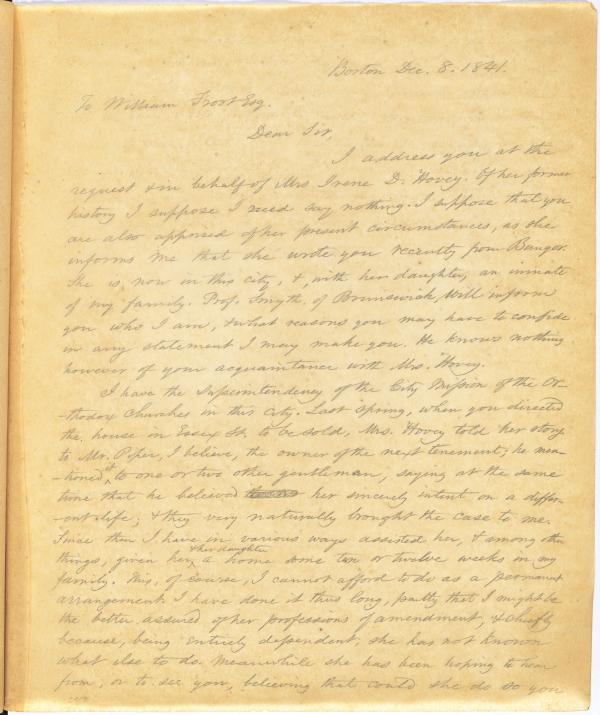 Boston Dec. 8. 1841.
To William Frost Esq.
Dear Sir,
I address you at the
request & in behalf of Mrs Irene D. Hovey. Of her former
history I suppose I need say nothing. I suppose that you
are also apprised of her present circumstances, as she
informs me that she wrote you recently from Bangor.
She is, now in this city, &, with her daughter, an inmate
of my family. Prof. Smyth, of Brunswick, will inform
you who I am, & what reasons you may have to confide
in any statement I may make you. He knows nothing
however of your acquaintance with Mrs. Hovey.
I have the Superintendency of the City Mission of the Or-
-thodox Churches in this City. Last Spring, when you directed
the house in Essex St. to be sold, Mrs. Hovey told her story
to Mr. Piper, I believe, the owner of the next tenement; he men-
-tioned it to one or two other gentleman, saying at the same
time that he believed her sincerely intent on a differ-
-ent life; & they very naturally brought the case to me.
Since then I have in various ways assisted her, & among other
things, given her & her daughter a home some ten or twelve weeks in my
family. This, of course, I cannot afford to do as a permanent
arrangement. I have done it thus long, partly that I might be
the better assured of her professions of amendment, & chiefly
because, being entirely dependent, she has not known
what else to do. Meanwhile she has been hoping to hear
from, or to see you, believing that could she do so you